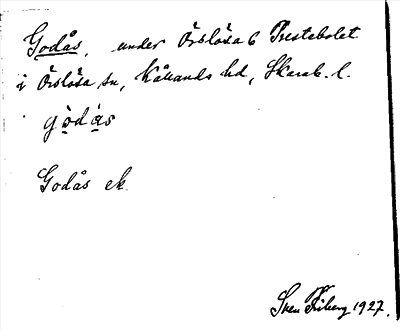 Godås, under Örslösa 6 Prestebolet
i Örslösa sn, Kållands hd, Skarab. l.
gòdås
Godås ek.
Sven Friberg 1927.